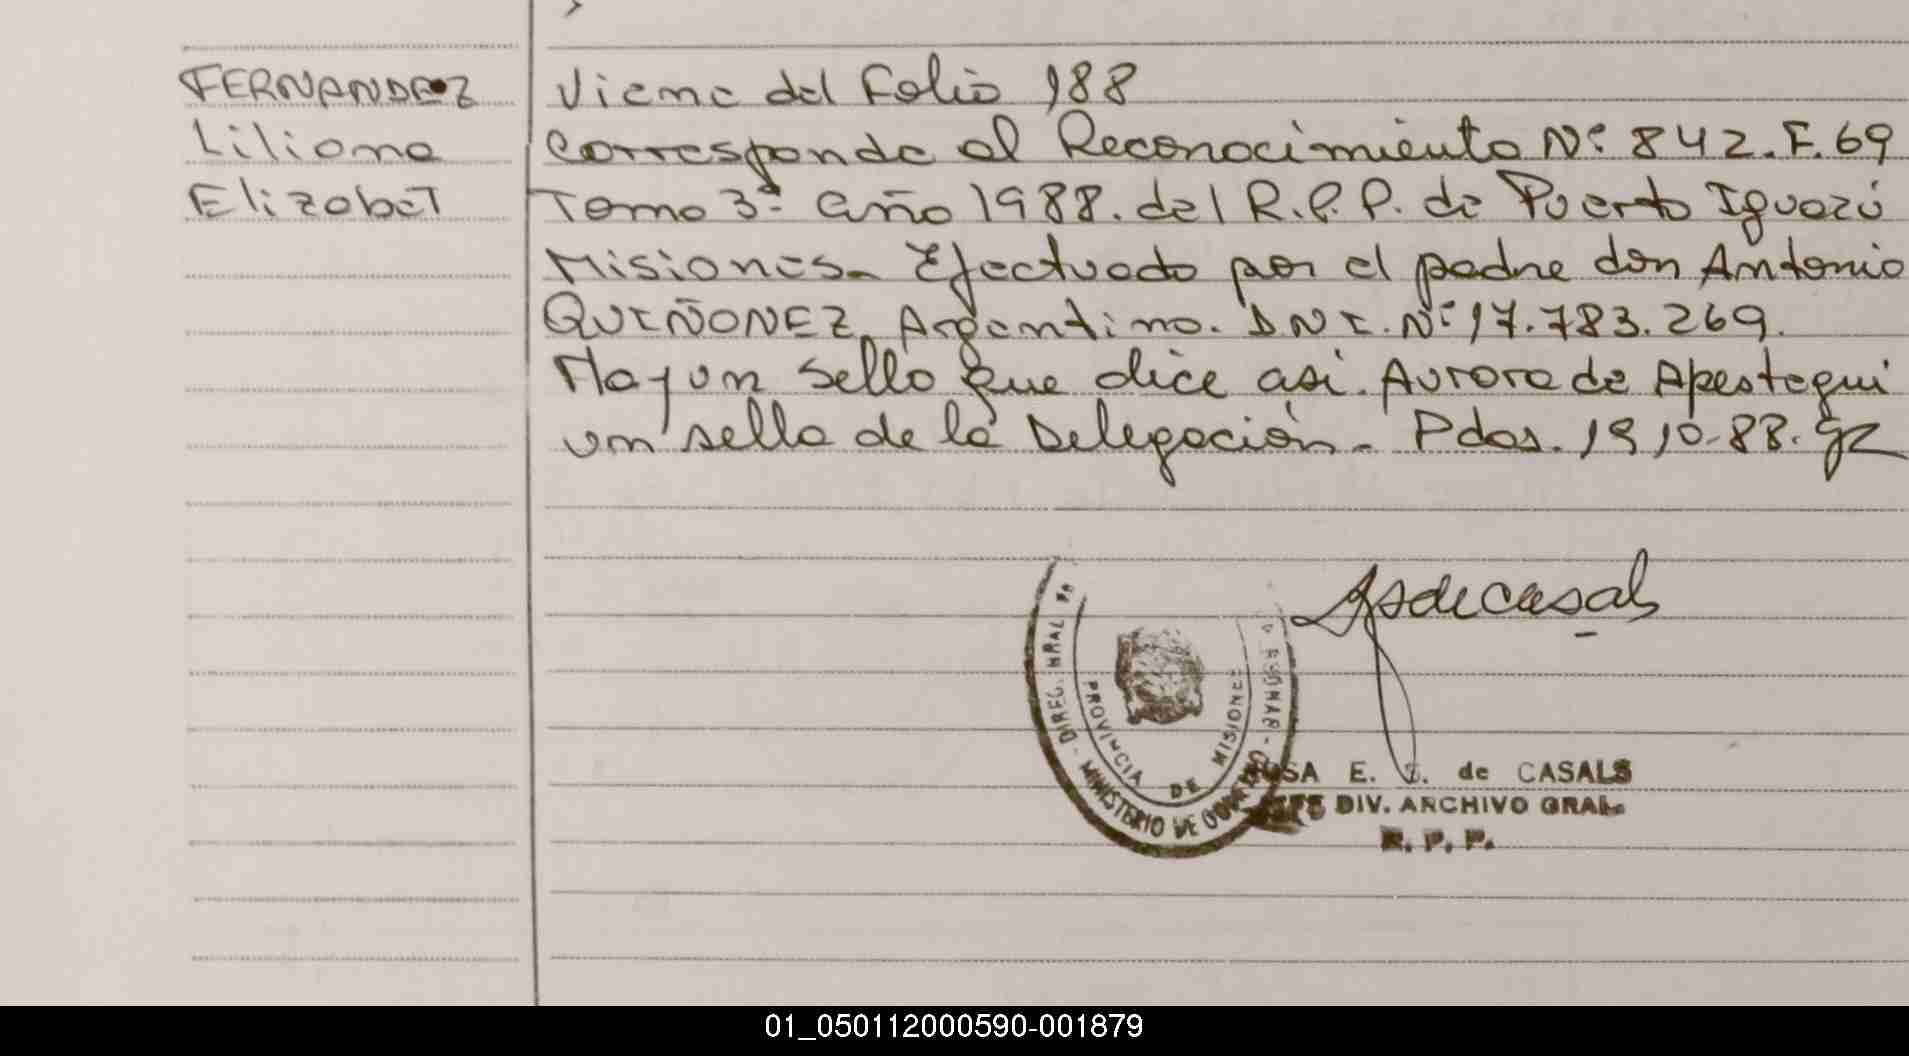 FERNANDEZ
Liliana
Elizabet
Viene del Folio 188
Corresponde al Reconocimiento Nº 842. F. 69
Tomo 3º año 1988. del R.P.P. de Puerto Iguazú
Misiones. Efectuado por el padre don Antonio
QUIÑONEZ, Argentino. DNI. Nº 17.783.269.
Hay un sello que dice así. Aurora de Apestegui
un sello de la Delegación. Pdas. 19,10-88.
PROVINCIA DE MISIONES
MINISTERIO DE GOBIERNO
E. S. de CASALS
DIV. ARCHIVO GRAL.
R. P. P.
01_050112000590-001879